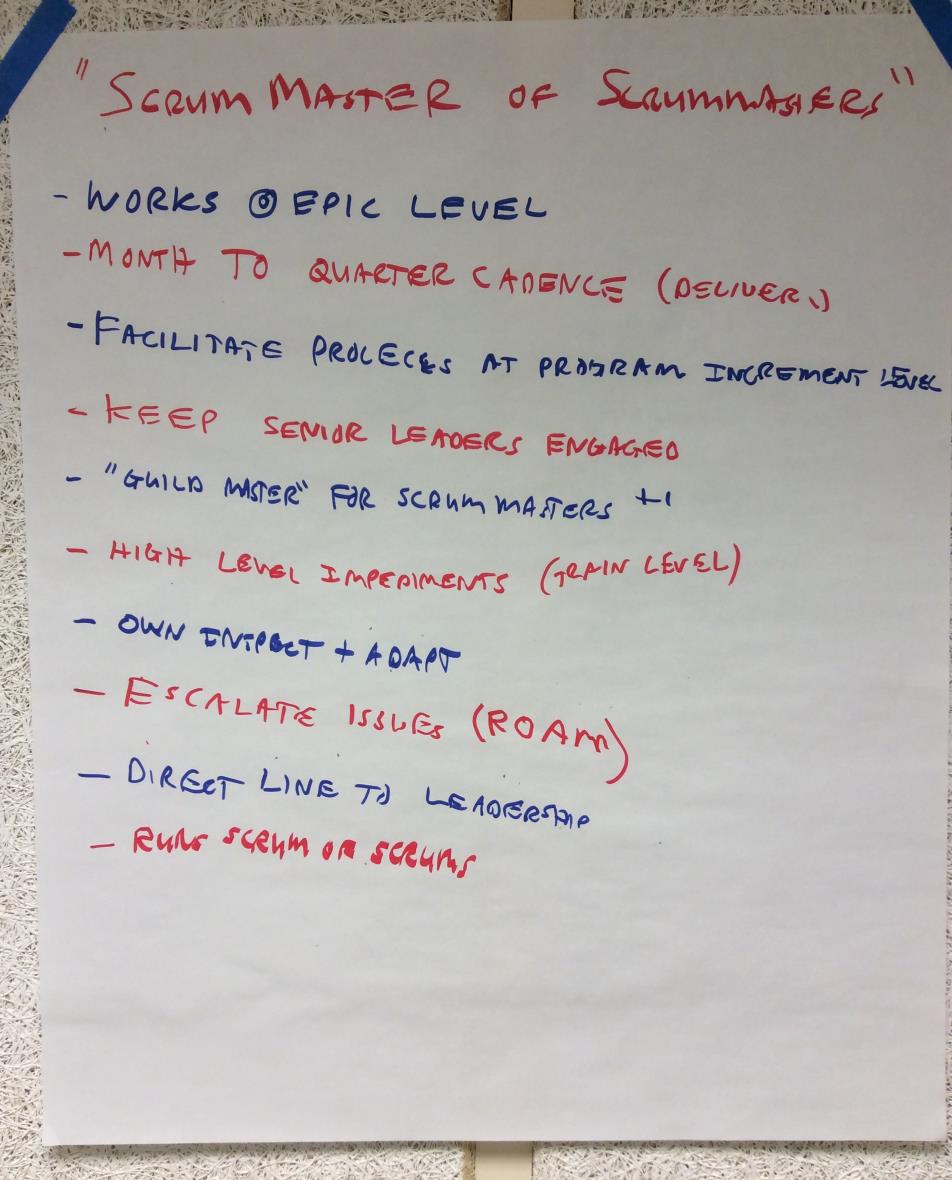 "SCRUM MASTER OF SCRUMMASTERS"
- WORKS @ EPIC LEVEL
- MONTH TO QUARTER CADENCE (DELIVER.)
- FACILITATE PROCECES AT PROGRAM INCREMENT LEVEL
- KEEP SENIOR LEADERS ENGAGED
- "GUILD MASTER" FOR SCRUM MASTERS +1
- HIGH LEVEL IMPEDIMENTS (TRAIN LEVEL)
- OWN INSPECT + ADAPT
- ESCALATE ISSUES (ROAM)
- DIRECT LINE TO LEADERSHIP
- RUNS SCRUM OF SCRUMS